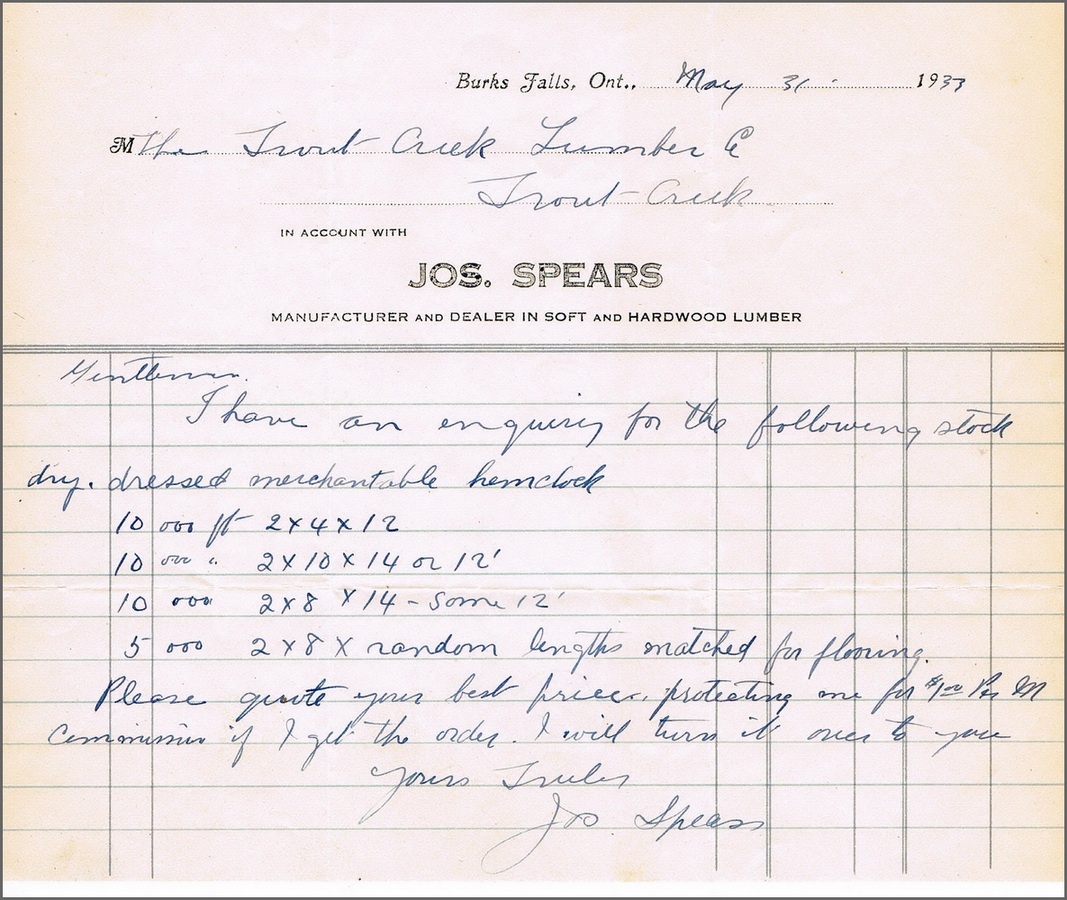 Burks Falls, Ont., May 31 - 1933
M The Trout Creek Lumber Co
Trout Creek.
IN ACCOUNT WITH
JOS. SPEARS
MANUFACTURER AND DEALER IN SOFT AND HARDWOOD LUMBER
Gentlemen.
I have an enquiry for the following stock
dry. dressed merchantable hemlock
10 000 ft 2x4x12
10 000 " 2x10x14 or 12'
10 000 2x8 x14 - some 12'
5 000 2x8 x random lengths matched for flooring.
Please quote your best prices, protecting me for $1.00 Per M
Commission if I get the order. I will turn it over to you
Yours Truly
Jos Spears